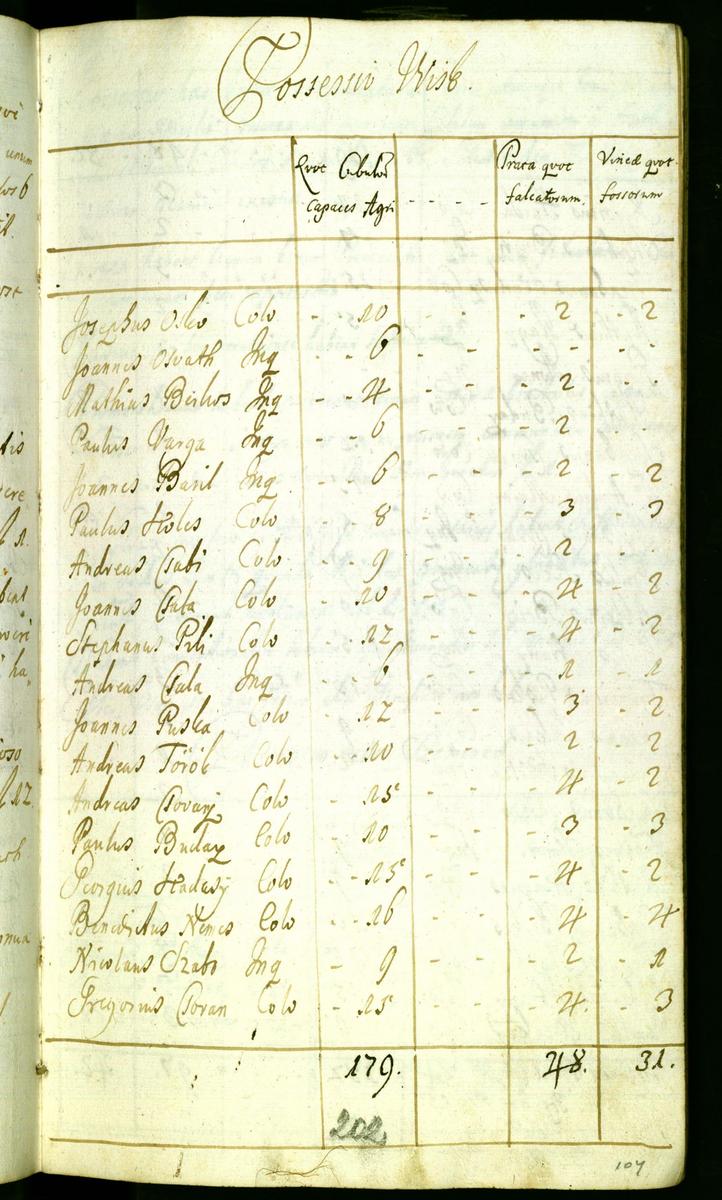 Possessio Wisk.
Quot Cubulos Capaces Agri - - - - Prata quot falcatorum. Vineæ quot fossorum
Josephus Osko Colo - - 10 - - - 2 - 2
Joannes Osvath Inq - - 6 - - - - - -
Mathias Beilus Inq - - 4 - - - 2 -
Paulus Varga Inq - - 6 - - - 2
Joannes Basil Inq - 6 - - - 2 - 2
Paulus Holes Colo - 8 - - - 3 - 3
Andreas Csabi Colo - 9 - - - 2 -
Joannes Csala Colo - 10 - - - 4 - 2
Stephanus Pili Colo - 12 - - - 4 - 2
Andreas Csala Inq - 6 - - - 1 - 1
Joannes Puska Colo - 12 - - - 3 - 2
Andreas Török Colo - 10 - - - 2 - 2
Andreas Csovarj Colo - 15 - - - 4 - 2
Paulus Buday Colo - 10 - - - 3 - 3
Georgius Hadasy Colo - 15 - - - 4 - 2
Benedictus Nemes Colo - 16 - - - 4 - 4
Nicolaus Szabo Inq - 9 - - - 2 - 1
Gregorius Csoran Colo - 15 - - - 4. - 3
179. 48. 31.
202
107